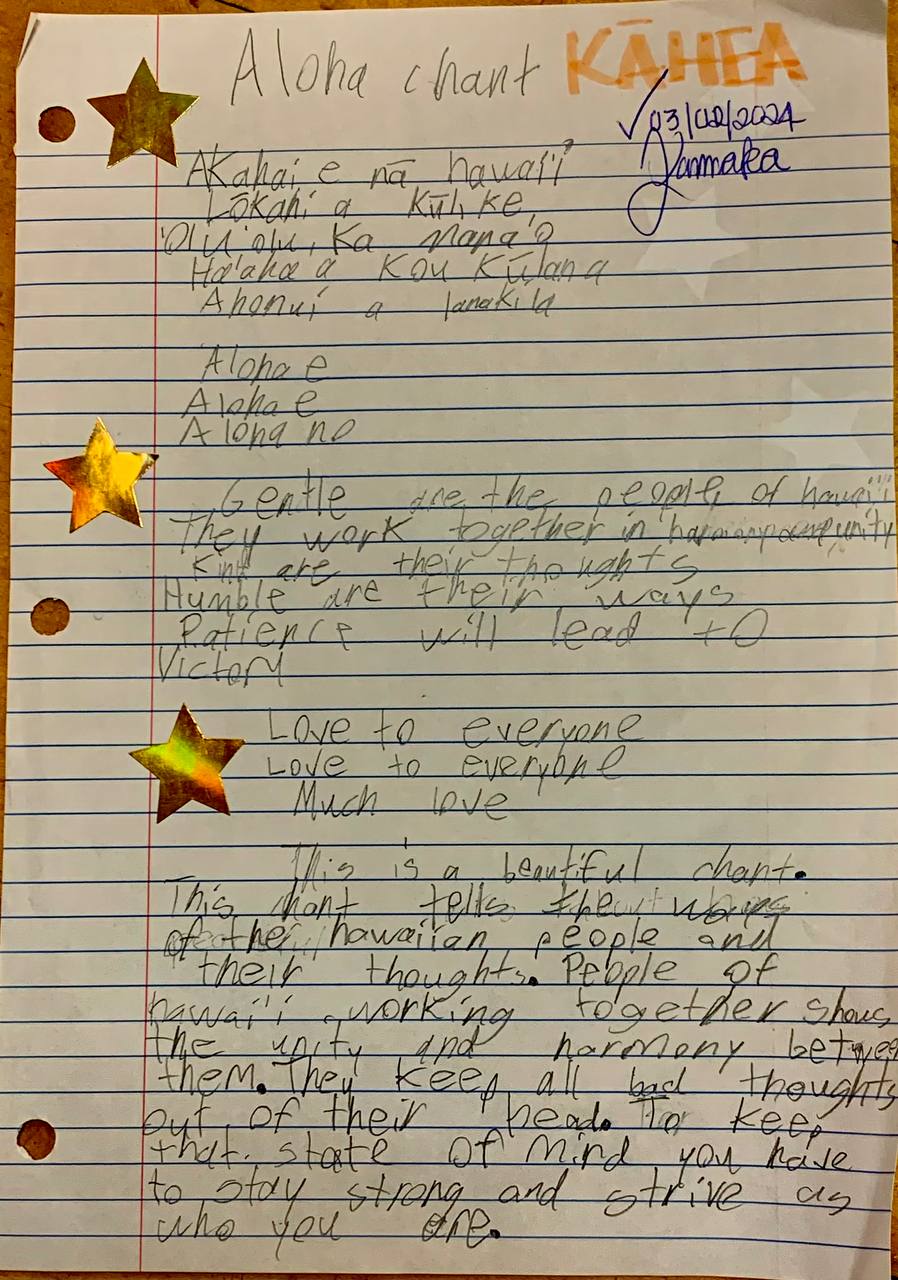 Aloha chant KĀHEA
✓ 03/02/2024
Akahai e nā hawai'i
Lōkahi a Kūlike
'Olu'olu, Ka Mana'o
Ha'aha'a Kou Kūlana
Ahonui a lanakila
Aloha e
Aloha e
Aloha no
Gentle are the people of hawai'i
They work together in unity
Kind are their thoughts
Humble are their ways
Patience will lead to
Victory
Love to everyone
Love to everyone
Much love
This is a beautiful chant.
This chant tells the ways
of the hawaiian people and
their thoughts. People of
hawai'i working together shows
the unity and harmony between
them. They keep all bad thoughts
out of their head. To keep
that state of mind you have
to stay strong and strive as
who you are.